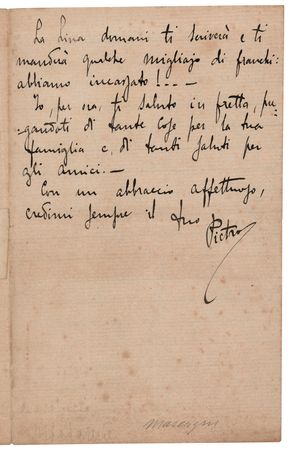 La Lina domani ti scriverà e ti
manderà qualche migliajo di franchi:
abbiamo incassato!.. —
Io, per ora, ti saluto in fretta, pre-
gandoti di tante cose per la tua
famiglia e di tanti saluti per
gli amici. —
Con un abbraccio affettuoso,
credimi sempre il tuo
Pietro
Mascagni